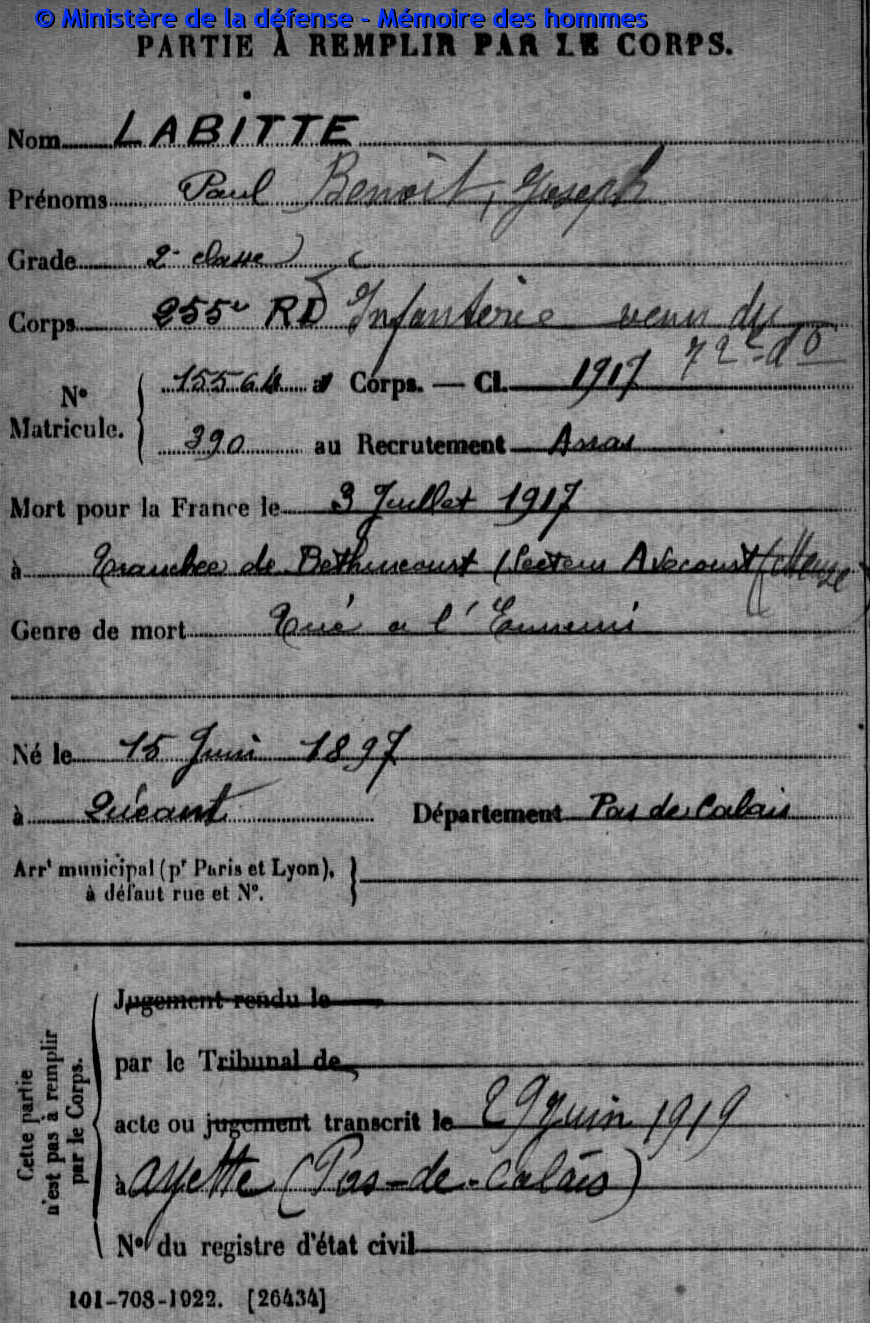 © Ministère de la défense - Mémoire des hommes
PARTIE À REMPLIR PAR LE CORPS.
Nom LABITTE
Prénoms Paul Benoît, Joseph
Grade 2e classe
Corps 255e RD Infanterie venu du
72e do
No Matricule. 15564 au Corps. — Cl. 1917
390 au Recrutement Arras
Mort pour la France le 3 Juillet 1917
à Tranchée de Béthincourt (Secteur Avocourt (Meuse)
Genre de mort Tué a l'Ennemi
Né le 15 Juin 1897
à Quéant Département Pas de Calais
Arrt municipal (pr Paris et Lyon),
à défaut rue et No.
Cette partie
n'est pas à remplir
par le Corps.
Jugement rendu le
par le Tribunal de
acte ou jugement transcrit le 29 juin 1919
à Ayette (Pas-de-Calais)
No du registre d'état civil
101-708-1922. [26434]